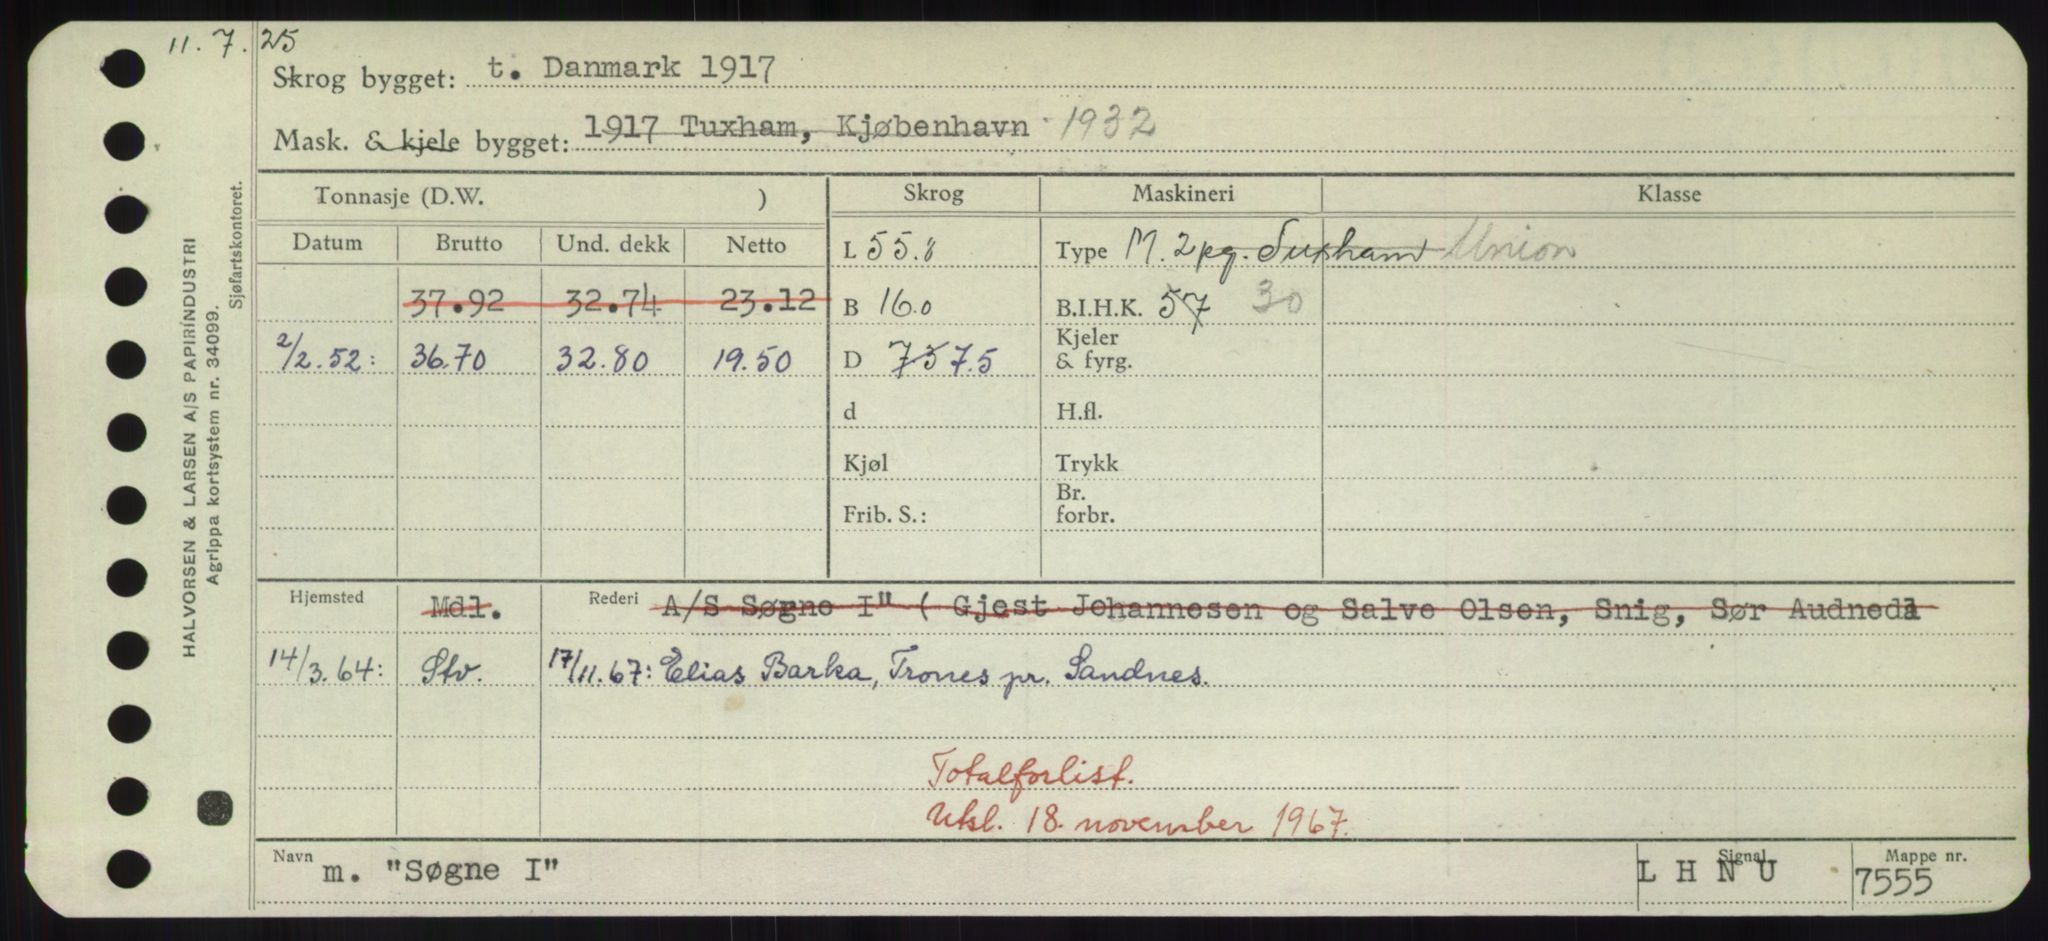 11. 7. 25
Skrog bygget: t. Danmark 1917
Mask. & kjele bygget: 1917 Tuxham, Kjøbenhavn 1932
Tonnasje (D.W. ) Skrog Maskineri Klasse
Datum Brutto Und. dekk Netto L 55.8 Type M. 2 pg. Tuxham Union
37.92 32.74 23.12 B 16.0 B.I.H.K. 57 30
2/2.52: 36.70 32.80 19.50 D 75 7.5 Kjeler & fyrg.
d H.fl.
Kjøl Trykk
Frib. S.: Br. forbr.
Hjemsted Mdl. Rederi A/S Søgne I" ( Gjest Johannesen og Salve Olsen, Snig, Sør Audnedl
14/3.64: Stv. 17/11.67: Elias Barka, Trones pr. Sandnes.
Totalforlist.
Utsl. 18. november 1967.
Navn m. "Søgne I" Signal L H N U Mappe nr. 7555
HALVORSEN & LARSEN A/S PAPIRINDUSTRI
Agrippa kortsystem nr. 34099.
Sjøfartskontoret.